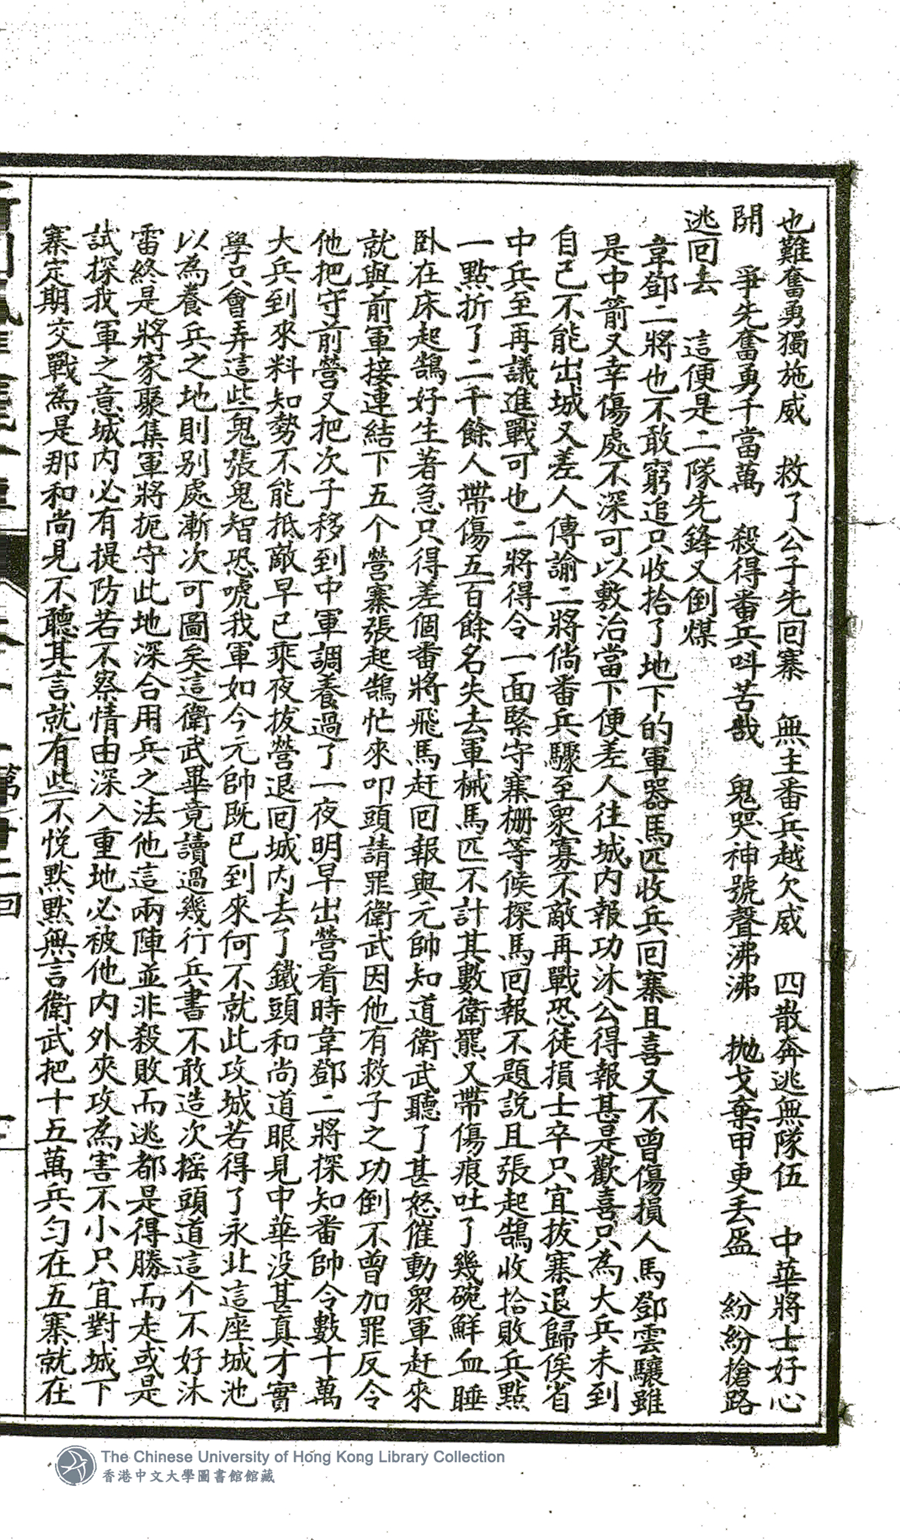 也難奮勇獨施威　救了公子先回寨　無主番兵越欠威　四散奔逃無隊伍　中華將士好心
開　爭先奮勇千當萬　殺得番兵呌苦哉　鬼哭神號聲沸沸　拋戈棄甲更丟盔　紛紛搶路
逃回去　這便是二隊先鋒又倒煤
韋鄧二將也不敢窮追只收拾了地下的軍器馬匹收兵回寨且喜又不曾傷損人馬鄧雲驤雖
是中箭又幸傷處不深可以敷治當下便差人往城內報功沐公得報甚是歡喜只為大兵未到
自己不能出城又差人傳諭二將倘番兵驟至眾寡不敵再戰恐徒損士卒只宜拔寨退歸俟省
中兵至再議進戰可也二將得令一面緊守寨柵等候探馬回報不題說且張起鵠收拾敗兵點
一點折了二千餘人帶傷五百餘名失去軍械馬匹不計其數衛羆又帶傷痕吐了幾碗鮮血睡
臥在床起鵠好生著急只得差個番將飛馬赶回報與元帥知道衛武聽了甚怒催動眾軍赶來
就與前軍接連結下五个營寨張起鵠忙來叩頭請罪衛武因他有救子之功倒不曾加罪反令
他把守前營又把次子移到中軍調養過了一夜明早出營看時韋鄧二將探知番帥令數十萬
大兵到來料知勢不能抵敵早已乘夜拔營退回城內去了鐵頭和尚道眼見中華沒甚真才實
學只會弄這些鬼張鬼智恐唬我軍如今元帥既已到來何不就此攻城若得了永北這座城池
以為養兵之地則別處漸次可圖矣這衛武畢竟讀過幾行兵書不敢造次搖頭道這个不好沐
雷終是將家聚集軍將扼守此地深合用兵之法他這兩陣並非殺敗而逃都是得勝而走或是
試探我軍之意城內必有提防若不察情由深入重地必被他內外夾攻為害不小只宜對城下
寨定期交戰為是那和尚見不聽其言就有些不悅默默無言衛武把十五萬兵勻在五寨就在
The Chinese University of Hong Kong Library Collection
香港中文大學圖書館館藏